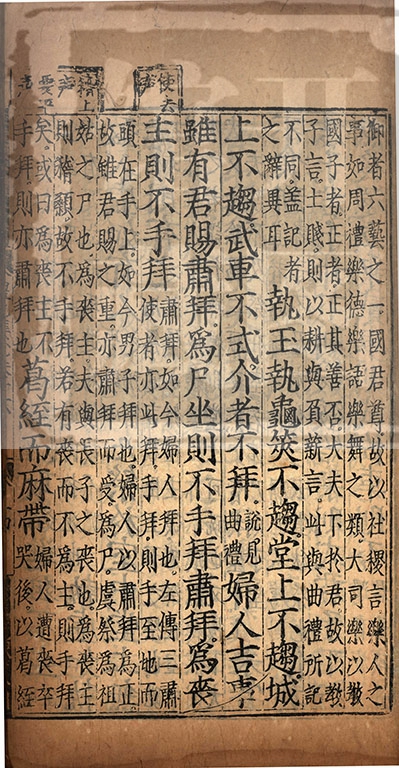 使去
声
稽上
声
要平
声
御者六藝之一國君尊故以社稷言樂人之
事如周禮樂德樂語樂舞之類大司樂以教
國子者正者正其善否大夫下於君故以教
子言士賤則以耕與負薪言此與曲禮所記
不同盖記者
之辭異耳
執王執龜筴不趨堂上不趨城
上不趨武車不式介者不拜
說見
曲禮
婦人吉事
雖有君賜肅拜爲尸坐則不手拜肅拜爲喪
主則不手拜
肅拜如今婦人拜也左傳三肅
使者亦此拜手拜則手至地而
頭在手上如今男子拜也婦人以肅拜爲正
故雖君賜之重亦肅拜而受爲尸虞祭爲祖
姑之尸也爲喪主夫與長子之喪也爲喪主
則稽顙故不手拜若有喪而不爲主則手拜
矣或曰爲喪主不
手拜則亦肅拜也
葛絰而麻帶
婦人遭喪卒
哭後以葛絰